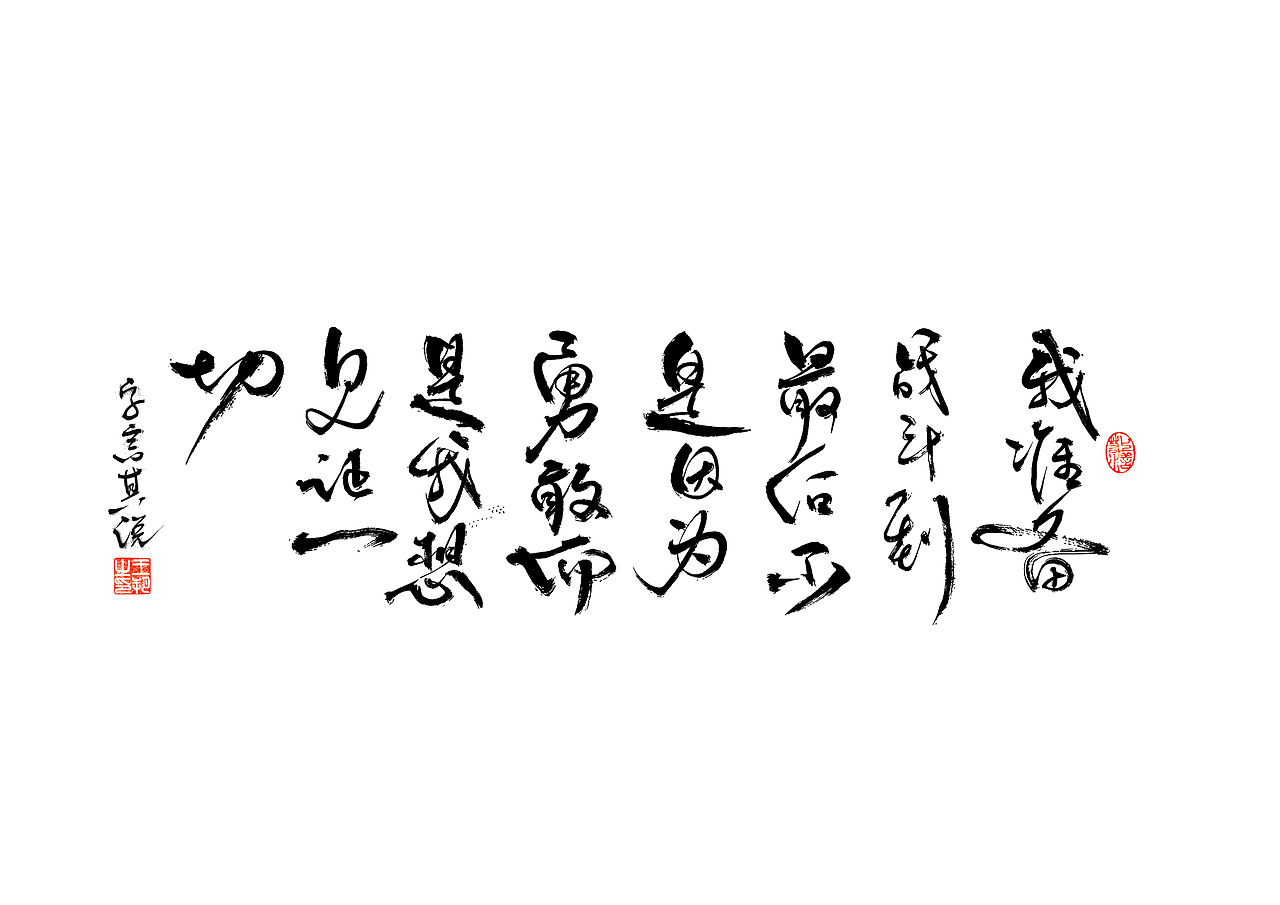 我准备
战斗到
最后不
是因为
勇敢而
是我想
见证一
切
字言其说